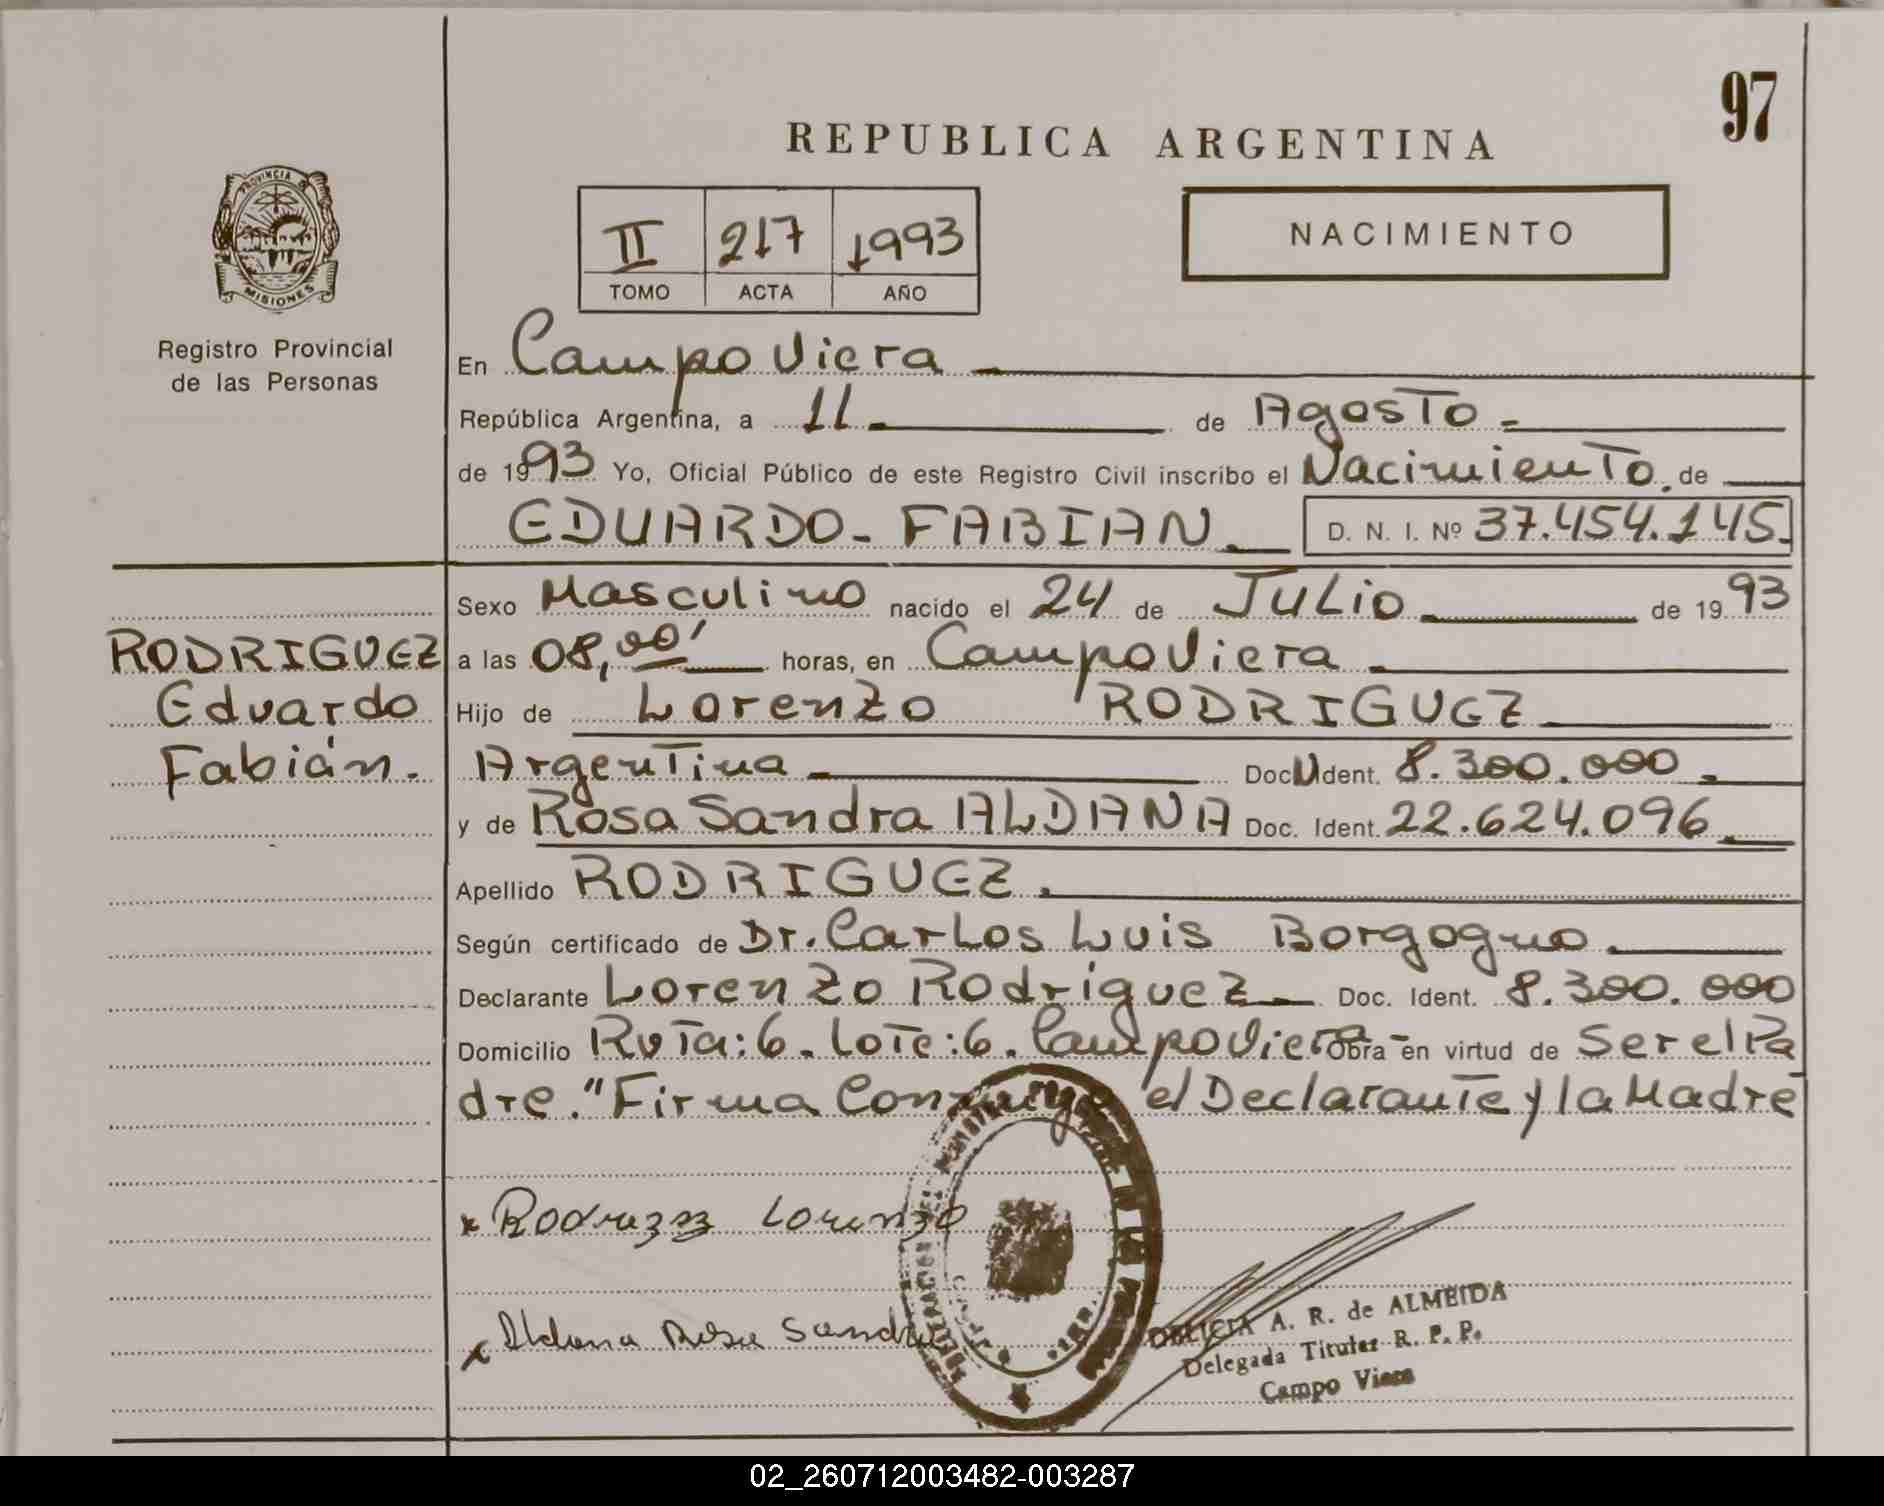 97
REPUBLICA ARGENTINA
PROVINCIA DE
MISIONES
Registro Provincial
de las Personas
II 217 1993
TOMO ACTA AÑO
NACIMIENTO
En Campo Viera
República Argentina, a 11 de Agosto
de 1993 Yo, Oficial Público de este Registro Civil inscribo el Nacimiento. de
EDUARDO - FABIAN D. N. I. Nº 37.454.145.
RODRIGUEZ
Eduardo
Fabián.
Sexo Masculino nacido el 24 de JULio de 1993
a las 08,00' horas, en Campo Viera
Hijo de Lorenzo RODRIGUEZ
Argentina Doc U Ident. 8.300.000
y de Rosa Sandra ALDANA Doc. Ident. 22.624.096
Apellido RODRIGUEZ.
Según certificado de Dr. Carlos Luis Borgogno.
Declarante Lorenzo Rodríguez Doc. Ident. 8.300.000
Domicilio Ruta: 6. Lote: 6. Campo Viera - Obra en virtud de Ser el Pa
dre. "Firma Conmigo el Declarante y la Madre
x Rodrigez Lorenzo
x Aldana Rosa Sandra
DELICIA A. R. de ALMEIDA
Delegada Titular R. P. P.
Campo Viera
02_260712003482-003287